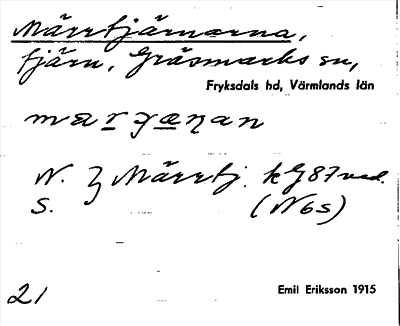 Märrtjärnarna,
tjärn, Gräsmarks sn,
Fryksdals hd, Värmlands län
N. } Märrtj. kG87vad.
S. (N6s)
21
Emil Eriksson 1915